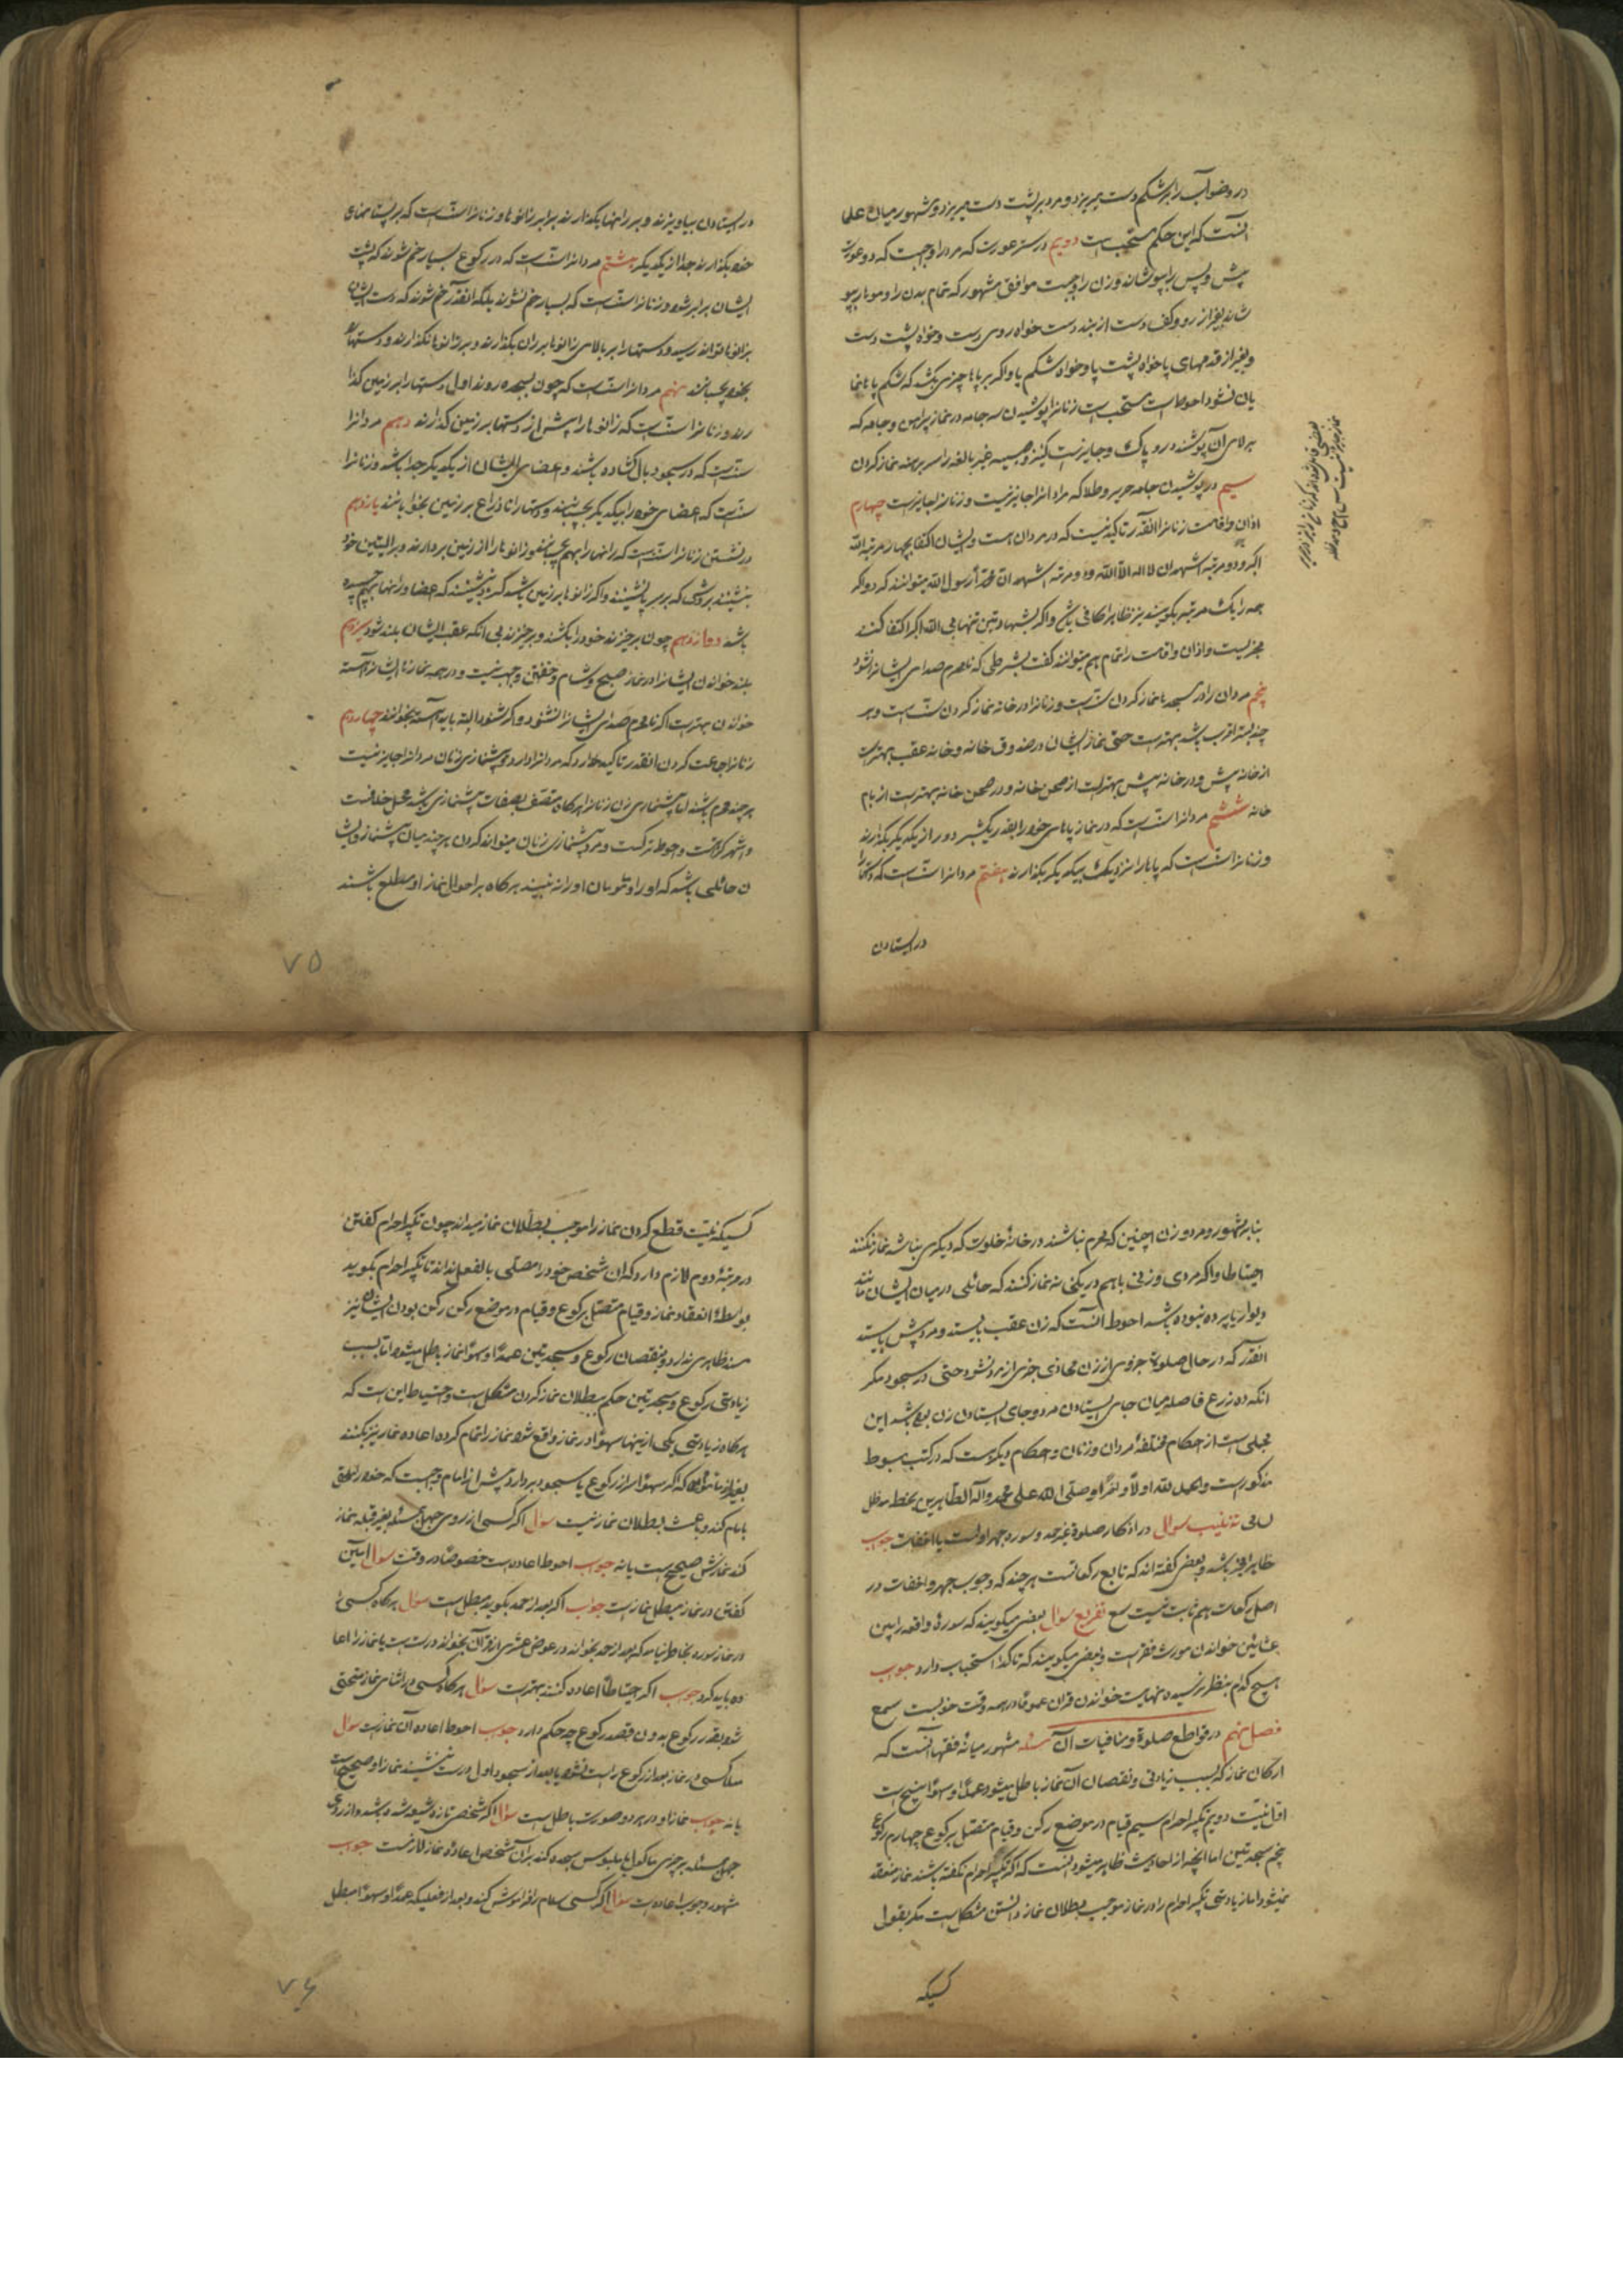 در وضو آب را بر شکم دست میریزد و مرد بر پشت دست میریزد و مشهور میان علما
آنست که این حکم مستحب است دویم در ستر عورت که مرد را واجبست که دو عورت
پیش و پس را بپوشاند و زن را واجبست موافق مشهور که تمام بدن را و مو را بپو
شاند بغیر از رو و کف دست از بند دست خواه روی دست و خواه پشت دست
و بغیر از قدمهای پا خواه پشت پا و خواه شکم پا و اگر بر پاها چیزی بکشد که شکم پا نما
یان نشود احوط است مستحب است زنانرا پوشیدن سه جامه در نماز پیراهن و جامه که
بر بالای آن پوشند و رو پاک و جایز است کنیز و صبیه غیر بالغه را سر برهنه نماز کردن
سیم در پوشیدن جامه حریر و طلا که مردانرا جایز نیست و زنانرا جایز است چهارم
اذان و اقامت زنانرا آنقدر تاکید نیست که در مردان هست و ایشان اکتفا بچهار مرتبه الله
اکبر و دو مرتبه اشهد ان لا اله الا الله و دو مرتبه اشهد ان محمدا رسول الله میتوانند کرد و اگر
همه را یک مرتبه بگویند نیز ظاهرا کافی باشد و اگر بشهادتین تنها بی الله اکبر اکتفا کنند
مجزیست و اذان و اقامت را تمام هم میتوانند گفت بشرطی که نامحرم صدای ایشانرا نشنود
پنجم مردان را در مسجد نماز کردن سنت است و زنانرا در خانه نماز کردن سنت است و هر
چند بستر اقرب باشد بهتر است حتی نماز ایشان در صندوق خانه و خانه عقب بهتر است
از خانه پیش و در خانه پیش بهتر است از صحن خانه و در صحن خانه بهتر است از بام
خانه ششم مردانرا سنت است که در نماز پاهای خود را بقدر یکشبر دور از یکدیگر بگذارند
و زنانرا سنت است که پاها را نزدیک بیکدیگر بگذارند هفتم مردانرا سنت است که دستها را
در ایستادن
در ایستادن بیاویزند و بر رانها بگذارند برابر زانوها و زنانرا سنت است که بر پستانهای
خود بگذارند جدا از یکدیگر هشتم مردانرا سنت است که در رکوع بسیار خم شوند که پشت
ایشان برابر شود و زنانرا سنت است که بسیار خم نشوند بلکه آنقدر خم شوند که دست ایشان
بزانوها تواند رسید و دستها را بر بالای زانوها بر ران بگذارند و بر زانوها نگذارند و دستها را
بخود بچسبانند نهم مردانرا سنت است که چون بسجده روند اول دستها را بر زمین گذا
رند و زنانرا سنت است که زانوها را پیش از دستها بر زمین گذارند دهم مردانرا
سنت است که در سجود بال گشاده باشند و اعضای ایشان از یکدیگر جدا باشد و زنانرا
سنت است که اعضای خود را بیکدیگر بچسبانند و دستها را تا ذراع بر زمین بخوابانند یازدهم
در نشستن زنانرا سنت است که رانها را بهم بچسبانند و زانوها را از زمین بردارند و بر الیتین خود
بنشینند بروشی که بر سر پا نشینند و اگر زانوها بر زمین باشد گرد بنشینند که اعضا و رانها بهم چسبیده
باشد دوازدهم چون برخیزند خود را بکشند و برخیزند بی آنکه عقب ایشان بلند شود سیزدهم
بلند خواندن ایشانرا در نماز صبح و شام و خفتن واجب نیست و در همه نمازها ایشانرا آهسته
خواندن بهتر است اگر نامحرم صدای ایشانرا نشنود و اگر شنود البته باید آهسته بخوانند چهاردهم
زنانرا جماعت کردن آنقدر تاکید ندارد که مردانرا دارد و پیشنمازی زنان مردانرا جایز نیست
هر چند محرم باشند اما پیشنمازی زن زنانرا هرگاه متصف بصفات پیشنمازی باشد محل خلافست
و اشهر کراهت و احوط ترکست و مرد پیشنمازی زنان میتواند کردن هر چند میان پیشنماز و ایشا
ن حائلی باشد که او را و مأمومان او را نه بینند هرگاه بر احوال نماز او مطلع باشند
۷۵
بنابر مشهور و مرد و زن اجنبی که محرم نباشند در خانهٔ خلوت که دیگری نباشد نماز نکنند
احتیاطا و اگر مردی و زنی باهم در یکخانه نماز کنند که حائلی در میان ایشان مانند
دیوار یا پرده نبوده باشد احوط آنست که زن عقب بایستد و مرد پیش بایستد
آنقدر که در حال صلوة جزوی از زن محاذی جزوی از مرد نشود حتی در سجود مگر
آنکه ده زرع فاصله میان جای ایستادن مرد و جای ایستادن زن بوده باشد این
مجملی است از احکام مختلفهٔ مردان و زنان و احکام دیگر هست که در کتب مبسوط
مذکور است والحمد لله اولاً و آخراً وصلی الله علی محمد وآله الطاهرین بخط مدظله
سؤال در اذکار صلوة غیر حمد و سوره جهر اولیست یا اخفات جواب
ظاهرا مخیر باشد و بعضی گفته اند که تابع رکعاتست هر چند که وجوب جهر و اخفات در
اصل رکعات هم ثابت نیست سؤال بعضی میگویند که سورهٔ واقعه را بین
عشائین خواندن مورث فقر است و بعضی میگویند که تاکد استحباب دارد جواب
هیچ کدام بنظر نرسیده نهایت خواندن قران عموماً در همه وقت خوبست
فصل نهم در قواطع صلوة و منافیات آن مسئله مشهور میانهٔ فقها آنست که
ارکان نماز که بسبب زیادتی و نقصان آن نماز باطل میشود عمداً و سهواً پنج است
اول نیت دویم تکبیر احرام سیم قیام در موضع رکن و قیام متصل برکوع چهارم رکوع
پنجم سجدتین اما آنچه از احادیث ظاهر میشود آنست که اگر تکبیر احرام نگفته باشند نماز منعقد
نمیشود اما زیادتی تکبیر احرام را در نماز موجب بطلان نماز دانستن مشکل است مگر بقول
کسیکه
کسیکه نیت قطع کردن نماز را موجب بطلان نماز میداند چون تکبیر احرام گفتن
در مرتبهٔ دوم لازم دارد که آن شخص خود را مصلی بالفعل نداند تا تکبیر احرام بگوید
بواسطهٔ انعقاد نماز و قیام متصل برکوع و قیام در موضع رکن رکن بودن ایشان نیز
سند ظاهری ندارد و بنقصان رکوع و سجدتین عمداً و سهواً نماز باطل میشود اما بسبب
زیادتی رکوع و سجدتین حکم ببطلان نماز کردن مشکل است و احتیاط این است که
هرگاه زیادتی یکی از اینها سهواً در نماز واقع شود نماز را تمام کرده اعاده نماز نیز بکنند
بغیر از مأموم که اگر سهواً سر از رکوع یا سجود بردارد پیش از امام واجبست که خود را ملحق
بامام کند و باعث بطلان نماز نیست سؤال اگر کسی از روی جهل بمسئله بغیر قبله نماز
کند نمازش صحیح است یا نه جواب احوط اعاده است خصوصاً در وقت سؤال آمین
گفتن در نماز مبطل نماز است جواب اگر بعد از حمد بگوید مبطل است سؤال هرگاه کسی را
در نماز سوره بخاطر نیامد که بعد از حمد بخواند در عوض عشری از قرآن بخواند درست است یا نماز را اعا
ده باید کرد جواب اگر احتیاطاً اعاده کنند بهتر است سؤال هرگاه کسی در اثنای نماز منحنی
شود بقدر رکوع بدون قصد رکوع چه حکم دارد جواب احوط اعاده آن نماز است سؤال
مثلا کسی در نماز بعد از رکوع راست نشود یا بعد از سجود اول درست ننشیند نماز او صحیح است
یا نه جواب نماز او در هر دو صورت باطل است سؤال اگر شخصی تازه شیعه شده باشد و از روی
جهل مسئله بر چیزی مأکول یا ملبوس سجده کند بر آن شخص اعادهٔ نماز لازمست جواب
مشهور وجوب اعاده است سؤال اگر کسی سلام را فراموش کند و بعد از فعلیکه عمداً و سهواً مبطل
۷۶